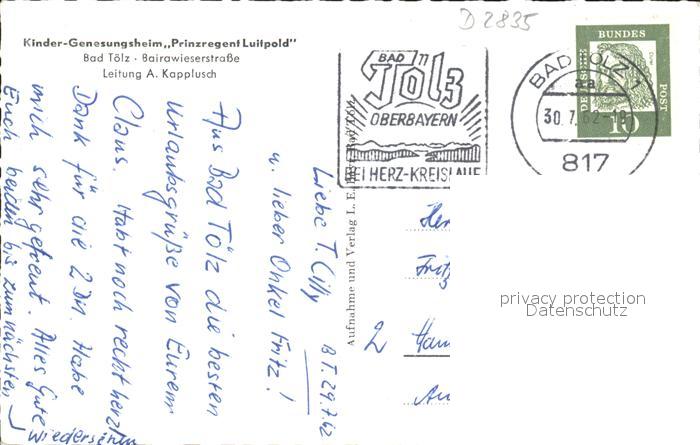 D 2835
Kinder-Genesungsheim „Prinzregent Luitpold"
Bad Tölz · Bairawieserstraße
Leitung A. Kapplusch
B.T. 29.7.62
Liebe T. Cilly
u. lieber Onkel Fritz!
Aus Bad Tölz die besten
Urlaubsgrüße von Eurem
Claus. Habt noch recht herzl.
Dank für die 2 DM. Habe
mich sehr gefreut. Alles Gute
Euch beiden bis zum nächsten
Wiedersehen
Aufnahme und Verlag L.
BAD
Tölz
OBERBAYERN
BEI HERZ-KREISLAUF
BAD TÖLZ 1
a-a
30.7.62-18
817
DEUTSCHE
BUNDES
POST
10
Her
Fritz
2 Ham
An
privacy protection
Datenschutz